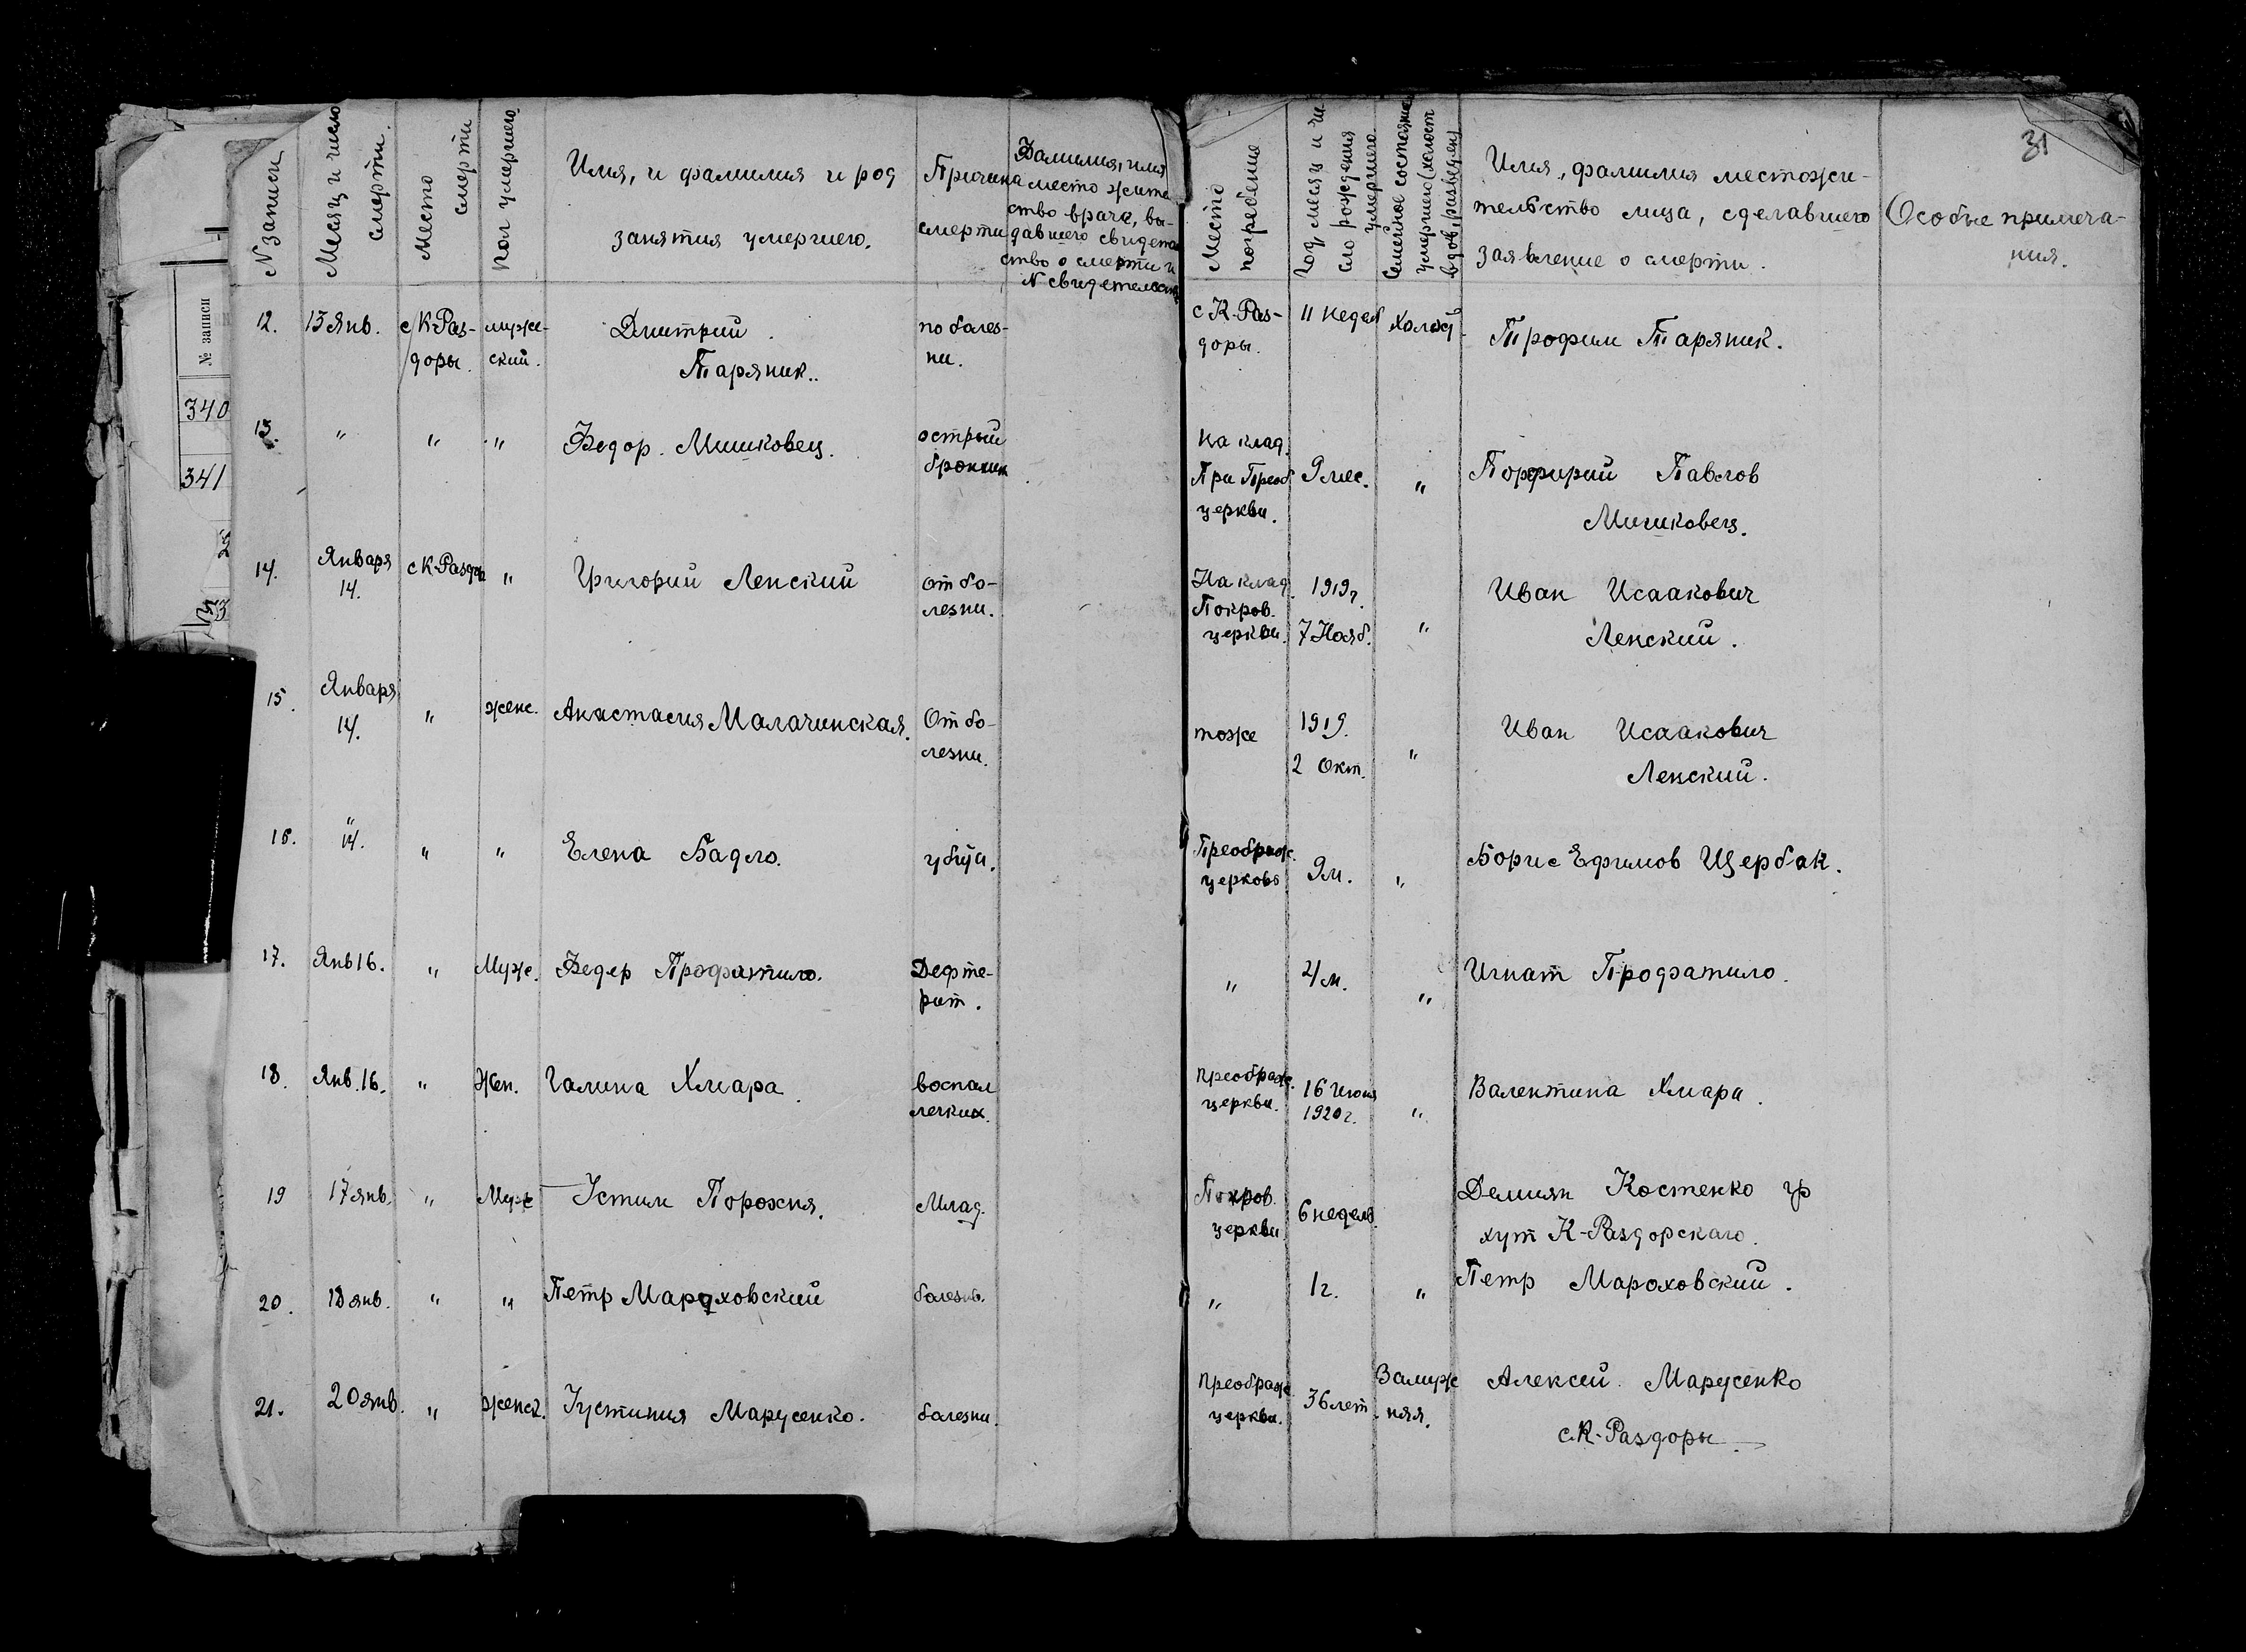 31
№ записи
340
341
N записи
Месяц и число
смерти.
Место
смерти
Пол умершего.
Имя, и фамилия и род
занятия умершего.
Причина
смерти
Фамилия, имя
место жите
ство врача, вы-
давшего свидетел
ство о смерти и
N свидетельст
Место
погребения
Год, месяц и чи-
сло рождения
умершего
Семейное состояние
умершего (холост
вдов, разведен)
Имя, фамилия местожи-
тельство лица, сделавшего
заявление о смерти.
Особые примеча-
ния.
12. 13 Янв. с К-Раз- муже- Дмитрий по болез- с К-Раз- 11 недел Холост Трофим Таряник.
доры. ский. Таряник. ни. доры.
13. " " " Федор. Мишковец. острый На клад.
бронхит При Преоб. 9 мес. " Порфирий Павлов
церкви. Мишковец.
14. Января с К-Раздоры " Григорий Ленский от бо- На клад. 1919г. Иван Исаакович
14. лезни. Покров. церкви. 7 Нояб. " Ленский.
15. Января " женс. Анастасия Малачинская. От бо- тоже 1919. " Иван Исаакович
14. лезни. 2 Окт. Ленский.
16. " 14. " " Елена Бадло. Преображ. 9 м. " Борис Ефимов Щербак.
церковь
17. Янв 16. " Муж. Федер Профатило. Дефте- " 4 м. " Игнат Профатило.
рит.
18. Янв. 16. " Жен. Галина Хмара. воспал Преображ. 16 Июня " Валентина Хмара.
легких. церкви. 1920 г.
19 17 янв. " Муж Iстин Порохня. Млад. Покров. 6 недель Демиян Костенко гр
церкви хут К-Раздорскаго.
20. 18 янв. " " Петр Мароховский болезнь. " 1 г. " Петр Мароховский.
21. 20 янв. " женск. Iустиния Марусенко. болезни. Преображ. 36 лет Замуж Алексей Марусенко
церкви. няя. с.К-Раздоры